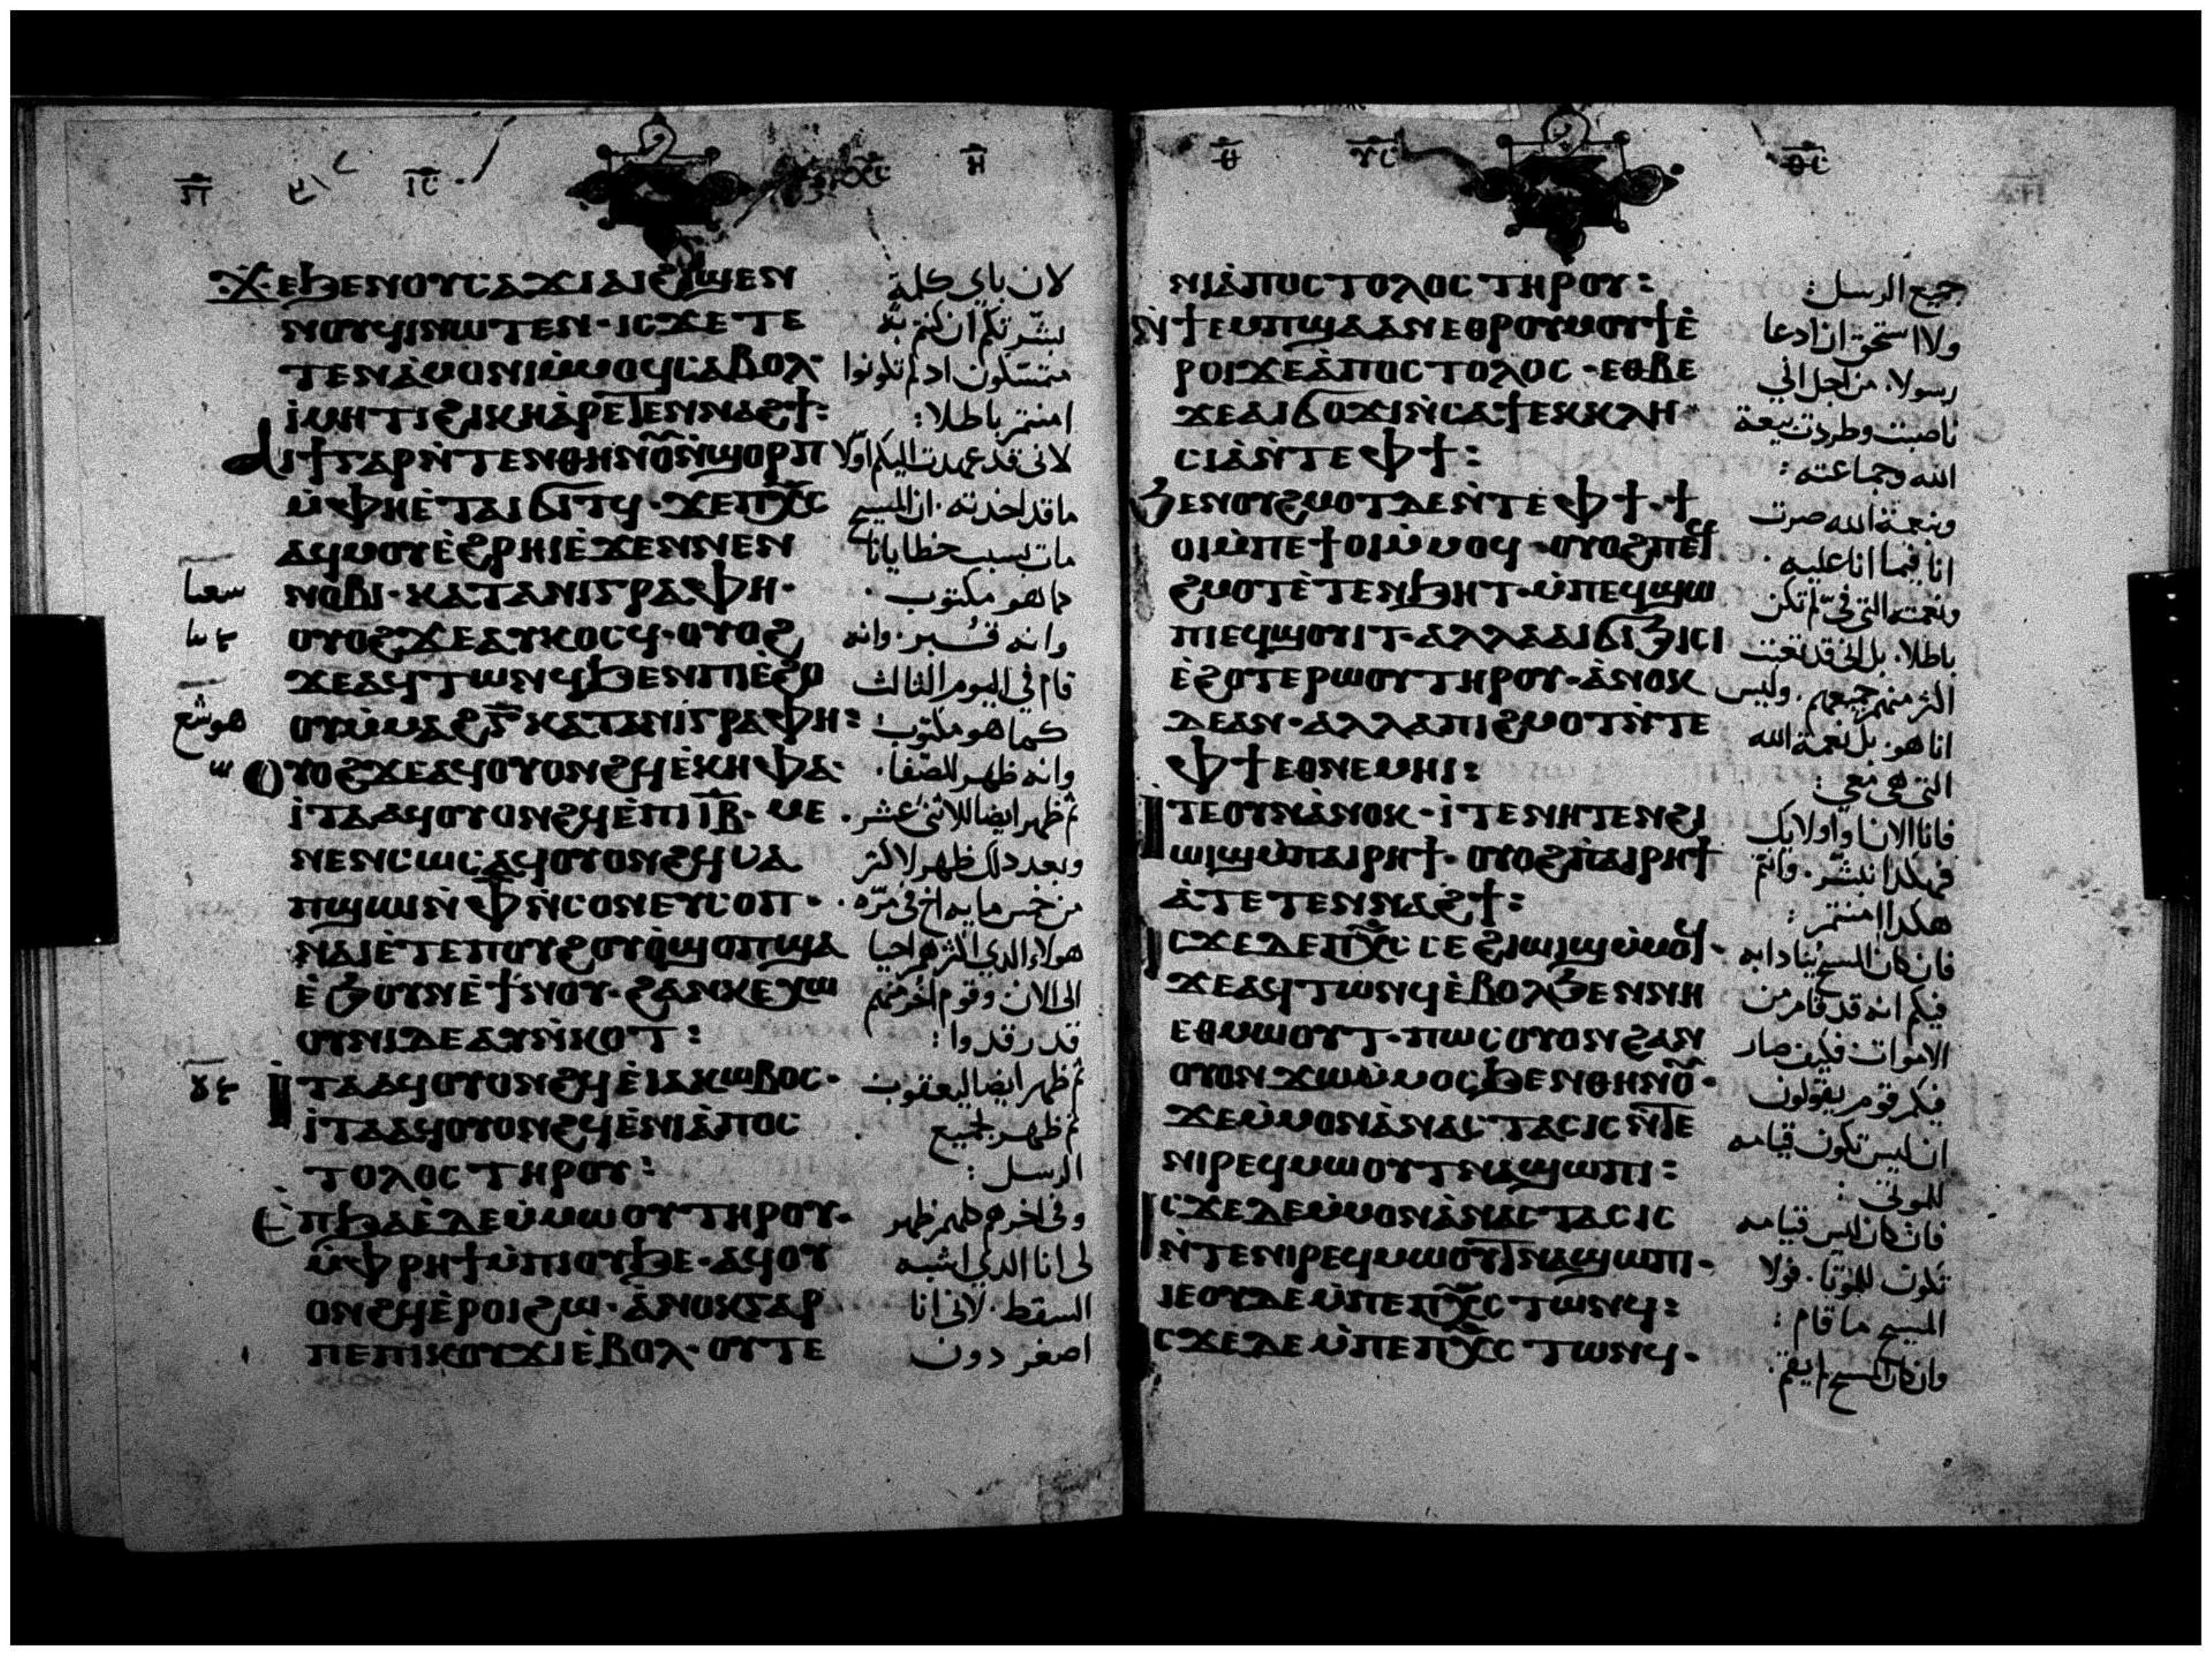 ⲓⲥ
ⲭⲥ
ⲏ
ϫⲉ ϧⲉⲛ ⲟⲩⲥⲁϫⲓ ⲁⲓϩⲓϣⲉⲛ
ⲛⲟⲩϥⲓ ⲛⲱⲧⲉⲛ · ⲓⲥϫⲉ ⲧⲉ
ⲧⲉⲛⲁ̀ⲙⲟⲛⲓ ⲙ̀ⲙⲟϥ ⲥⲁⲃⲟⲗ
ⲓ̀ⲙⲏⲧⲓ ϩⲓⲕⲏ ⲁ̀ⲣⲉⲧⲉⲛⲛⲁϩϯ :
ⲁⲓϯ ⲅⲁⲣ ⲛ̀ⲧⲉⲛ ⲑⲏⲛⲟⲩ ⲛ̀ϣⲟⲣⲡ
ⲙ̀ⲫⲏ ⲉ̀ⲧⲁⲓϭⲓⲧϥ · ϫⲉ ⲡⲭ̅ⲥ̅
ⲁϥⲙⲟⲩ ⲉ̀ϩⲣⲏⲓ ⲉ̀ϫⲉⲛ ⲛⲉⲛ
ⲛⲟⲃⲓ · ⲕⲁⲧⲁ ⲛⲓⲅⲣⲁⲫⲏ ·
ⲟⲩⲟϩ ϫⲉ ⲁⲩⲕⲟⲥϥ · ⲟⲩⲟϩ
ϫⲉ ⲁϥⲧⲱⲛϥ ϧⲉⲛ ⲡⲓⲉ̀ϩⲟ
ⲟⲩ ⲙ̀ⲙⲁϩ ⲅ̅ ⲕⲁⲧⲁ ⲛⲓⲅⲣⲁⲫⲏ :
ⲟⲩⲟϩ ϫⲉ ⲁϥⲟⲩⲟⲛϩϥ ⲉ̀ⲕⲏⲫⲁ ·
ⲓ̀ⲧⲁ ⲁϥⲟⲩⲟⲛϩϥ ⲉ̀ⲡⲓ ⲓ̅ⲃ̅ · ⲙⲉ
ⲛⲉⲛⲥⲱⲥ ⲁϥⲟⲩⲟⲛϩϥ ⲙⲁ
ⲡϣⲱⲓ ⲛ̀ ⲫ̅ ⲛ̀ⲥⲟⲛ ⲉⲩⲥⲟⲡ ·
ⲛⲁⲓ ⲉ̀ⲧⲉ ⲡⲟⲩϩⲟⲩⲟ̀ ϣⲟⲡ ϣⲁ
ⲉ̀ϧⲟⲩⲛ ⲉ̀ϯⲛⲟⲩ · ϩⲁⲛⲕⲉⲭⲱ
ⲟⲩⲛⲓ ⲇⲉ ⲁⲩⲛ̀ⲕⲟⲧ :
ⲓ̀ⲧⲁ ⲁϥⲟⲩⲟⲛϩϥ ⲉ̀ⲓⲁⲕⲱⲃⲟⲥ ·
ⲓ̀ⲧⲁ ⲁϥⲟⲩⲟⲛϩϥ ⲉ̀ⲛⲓⲁ̀ⲡⲟⲥ
ⲧⲟⲗⲟⲥ ⲧⲏⲣⲟⲩ :
ⲉ̀ⲡϧⲁⲉ̀ ⲇⲉ ⲙ̀ⲙⲱⲟⲩ ⲧⲏⲣⲟⲩ ·
ⲙ̀ⲫⲣⲏϯ ⲙ̀ⲡⲓⲟⲩϧⲉ · ⲁϥⲟⲩ
ⲟⲛϩϥ ⲉ̀ⲣⲟⲓ ϩⲱ · ⲁ̀ⲛⲟⲕ ⲅⲁⲣ
ⲡⲉ ⲡⲓⲕⲟⲩϫⲓ ⲉ̀ⲃⲟⲗ ⲟⲩⲧⲉ
لان باي كلمة
بشرتكم ان كنتم به
متمسكون اد لم تكونوا
امنتم باطلا :
لانى قد عهدت اليكم اولا
ما قد اخدته . ان المسيح
مات بسبب خطايانا
كما هو مكتوب .
وانه قُبر . وانه
قام في اليوم الثالث
كما هو مكتوب :
وانه ظهر للصفا .
ثم ظهر ايضا للاثنى عشر .
وبعد دلك ظهر لاكثر
من خمس مايه اخ فى مرّه .
هولاء الدي اكثرهم احيا
الى الان وقوم اخر منهم
قد رقدوا :
ثم ظهر ايضا ليعقوب
ثم ظهر لجميع
الرسل :
وفى اخرهم ظهر
لى انا الدي اشبه
السقط . لانى انا
اصغر دون
هوشع
ⲑ
ⲛⲓⲁ̀ⲡⲟⲥⲧⲟⲗⲟⲥ ⲧⲏⲣⲟⲩ :
ⲛ̀ϯⲉⲙⲡϣⲁ ⲁⲛ ⲉⲑⲣⲟⲩⲙⲟⲩϯ ⲉ̀
ⲣⲟⲓ ϫⲉ ⲁ̀ⲡⲟⲥⲧⲟⲗⲟⲥ · ⲉⲑⲃⲉ
ϫⲉ ⲁⲓϭⲟϫⲓ ⲛ̀ⲥⲁ ϯⲉⲕⲕⲗⲏ
ⲥⲓⲁ̀ ⲛ̀ⲧⲉ ⲫϯ :
ϧⲉⲛ ⲟⲩϩⲙⲟⲧ ⲇⲉ ⲛ̀ⲧⲉ ⲫϯ · ϯ
ⲟⲓ ⲙ̀ⲡⲉϯⲟⲓ ⲙ̀ⲙⲟϥ · ⲟⲩⲟϩ ⲡⲉϥ
ϩⲙⲟⲧ ⲉ̀ⲧⲉⲛϧⲏⲧ · ⲙ̀ⲡⲉϥϣⲱ
ⲡⲓ ⲉϥϣⲟⲩⲓⲧ · ⲁⲗⲗⲁ ⲁⲓϭⲓϧⲓⲥⲓ
ⲉ̀ϩⲟⲧⲉⲣⲱⲟⲩ ⲧⲏⲣⲟⲩ · ⲁ̀ⲛⲟⲕ
ⲇⲉ ⲁⲛ · ⲁⲗⲗⲁ ⲡⲓϩⲙⲟⲧ ⲛ̀ⲧⲉ
ⲫϯ ⲉⲑⲛⲉⲙⲏⲓ :
ⲓⲧⲉ ⲟⲩⲛ ⲁ̀ⲛⲟⲕ · ⲓ̀ⲧⲉ ⲛⲏ ⲧⲉⲛϩⲓ
ⲱⲓϣ ⲙ̀ⲡⲁⲓⲣⲏϯ · ⲟⲩⲟϩ ⲡⲁⲓⲣⲏϯ
ⲁ̀ⲧⲉⲧⲉⲛⲛⲁϩϯ :
ⲓⲥϫⲉ ⲇⲉ ⲡⲭ̅ⲥ̅ ⲥⲉϩⲓⲱⲓϣ ⲙ̀ⲙⲟϥ ·
ϫⲉ ⲁϥⲧⲱⲛϥ ⲉ̀ⲃⲟⲗ ϧⲉⲛ ⲛⲏ
ⲉⲑⲙⲱⲟⲩⲧ · ⲡⲱⲥ ⲟⲩⲟⲛ ϩⲁⲛ
ⲟⲩⲟⲛ ϫⲱⲙ̀ⲙⲟⲥ ϧⲉⲛ ⲑⲏⲛⲟⲩ ·
ϫⲉ ⲙ̀ⲙⲟⲛ ⲁ̀ⲛⲁⲥⲧⲁⲥⲓⲥ ⲛ̀ⲧⲉ
ⲛⲓⲣⲉϥⲙⲱⲟⲩⲧ ⲛⲁϣⲱⲡⲓ :
ⲓⲥϫⲉ ⲇⲉ ⲙ̀ⲙⲟⲛ ⲁ̀ⲛⲁⲥⲧⲁⲥⲓⲥ
ⲛ̀ⲧⲉ ⲛⲓⲣⲉϥⲙⲱⲟⲩⲧ ⲛⲁϣⲱⲡⲓ ·
ⲓⲉ ⲟⲩⲇⲉ ⲙ̀ⲡⲉ ⲡⲭ̅ⲥ̅ ⲧⲱⲛϥ :
ⲓⲥϫⲉ ⲇⲉ ⲙ̀ⲡⲉ ⲡⲭ̅ⲥ̅ ⲧⲱⲛϥ ·
جميع الرسل :
ولا استحق ان ادعا
رسولا . من اجل اني
ناصبت وطردت بيعة
الله وجماعته :
وبنعمة الله صرت
انا فيما انا عليه .
ونعمته التي فيّ لم تكن
باطلا . بل انى قد تعبت
اكثر منهم جميعهم . وليس
انا هو . بل نعمة الله
التي هى معي :
فانا الان او اولايك
فهكدا نبشّر . وانتم
هكدا امنتم :
فان كان المسيح ينادا به
فيكم انه قد قام من
الاموات فكيف صار
فيكم قوم يقولون
ان ليس تكون قيامه
للموتى :
فان كان ليس قيامه
تكون للموتا . فولا
المسيح ما قام :
وان كان المسيح لم يقم .